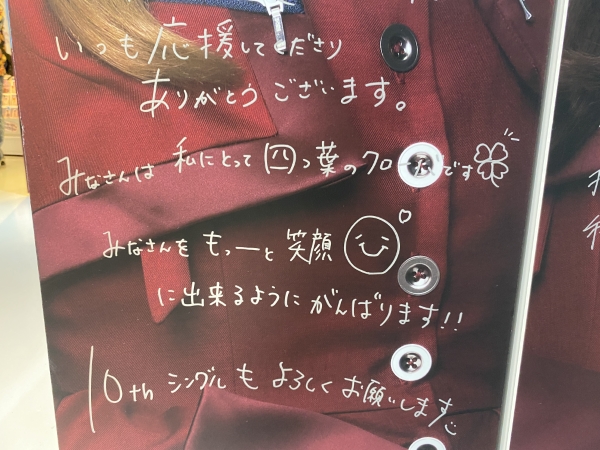 いつも応援してくださり
ありがとうございます。
みなさんは私にとって四つ葉のクローバーです
みなさんをもっーと笑顔
に出来るようにがんばります!!
10thシングルもよろしくお願いします